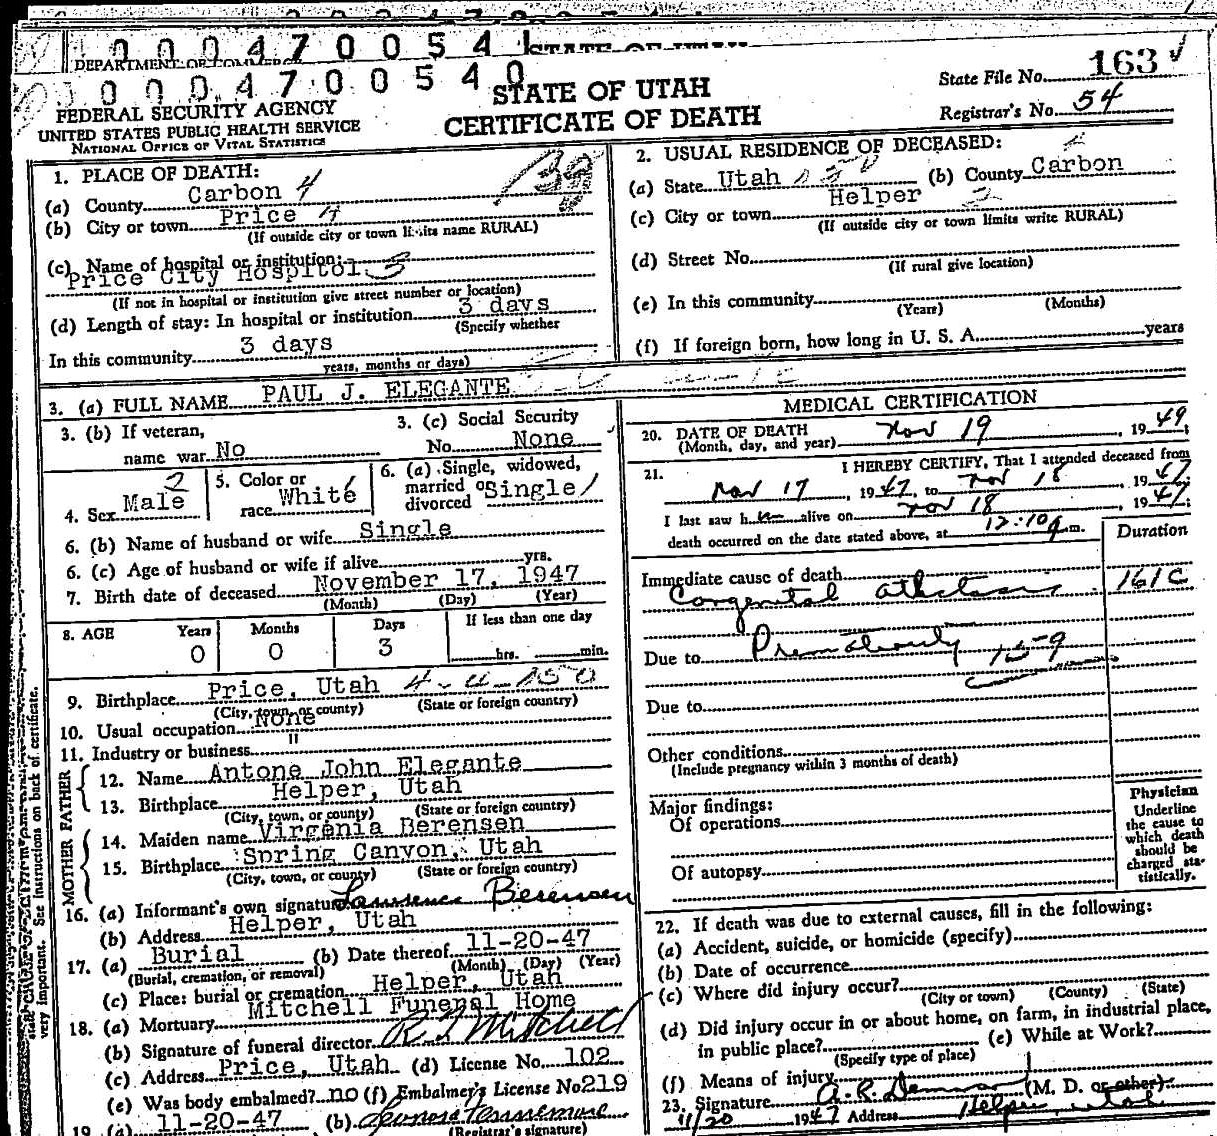 0 0 0 4 7 0 0 5 4
STATE OF UTAH
DEPARTMENT OF COMMERCE
0 0 0 4 7 0 0 5 4 0
STATE OF UTAH
CERTIFICATE OF DEATH
State File No. 163
Registrar's No. 54
FEDERAL SECURITY AGENCY
UNITED STATES PUBLIC HEALTH SERVICE
NATIONAL OFFICE OF VITAL STATISTICS
1. PLACE OF DEATH:
(a) County Carbon 4
(b) City or town Price 4
(If outside city or town limits name RURAL)
(c) Name of hospital or institution:
Price City Hospitol 3
(If not in hospital or institution give street number or location)
(d) Length of stay: In hospital or institution 3 days
(Specify whether
In this community 3 days
years, months or days)
2. USUAL RESIDENCE OF DECEASED:
(a) State Utah (b) County Carbon
(c) City or town Helper
(If outside city or town limits write RURAL)
(d) Street No.
(If rural give location)
(e) In this community
(Years) (Months)
(f) If foreign born, how long in U. S. A. years
3. (a) FULL NAME PAUL J. ELEGANTE
3. (b) If veteran, name war No
3. (c) Social Security No. None
4. Sex Male 2
5. Color or race White
6. (a) Single, widowed, married or divorced Single /
6. (b) Name of husband or wife Single
6. (c) Age of husband or wife if alive yrs.
7. Birth date of deceased November 17, 1947
(Month) (Day) (Year)
8. AGE Years Months Days If less than one day
0 0 3 hrs. min.
9. Birthplace Price, Utah
(City, town, or county) (State or foreign country)
10. Usual occupation None
11. Industry or business "
MOTHER FATHER
12. Name Antone John Elegante
13. Birthplace Helper, Utah
(City, town, or county) (State or foreign country)
14. Maiden name Virginia Berensen
15. Birthplace Spring Canyon, Utah
(City, town, or county) (State or foreign country)
16. (a) Informant's own signature Lawrence Berensen
(b) Address Helper, Utah
17. (a) Burial (b) Date thereof 11-20-47
(Burial, cremation, or removal) (Month) (Day) (Year)
(c) Place: burial or cremation Helper, Utah
18. (a) Mortuary Mitchell Funeral Home
(b) Signature of funeral director Mitchell
(c) Address Price, Utah (d) License No. 102
(e) Was body embalmed? no (f) Embalmer's License No 219
19. (a) 11-20-47 (b)
(Registrar's signature)
MEDICAL CERTIFICATION
20. DATE OF DEATH
(Month, day, and year) Nov 19, 1949;
21. I HEREBY CERTIFY, That I attended deceased from
Nov 17, 1947, to Nov 18, 1947;
I last saw h im alive on Nov 18, 1947;
death occurred on the date stated above, at 12:10 m.
Duration
Immediate cause of death
Congenital 161C
Due to Prematurity 159
Due to
Other conditions
(Include pregnancy within 3 months of death)
Major findings:
Of operations
Of autopsy
Physician
Underline
the cause to
which death
should be
charged sta-
tistically.
22. If death was due to external causes, fill in the following:
(a) Accident, suicide, or homicide (specify)
(b) Date of occurrence
(c) Where did injury occur?
(City or town) (County) (State)
(d) Did injury occur in or about home, on farm, in industrial place,
in public place? (e) While at Work?
(Specify type of place)
(f) Means of injury
23. Signature (M. D. or other)
11/20 1947 Address Helper, Utah
very important. See instructions on back of certificate.